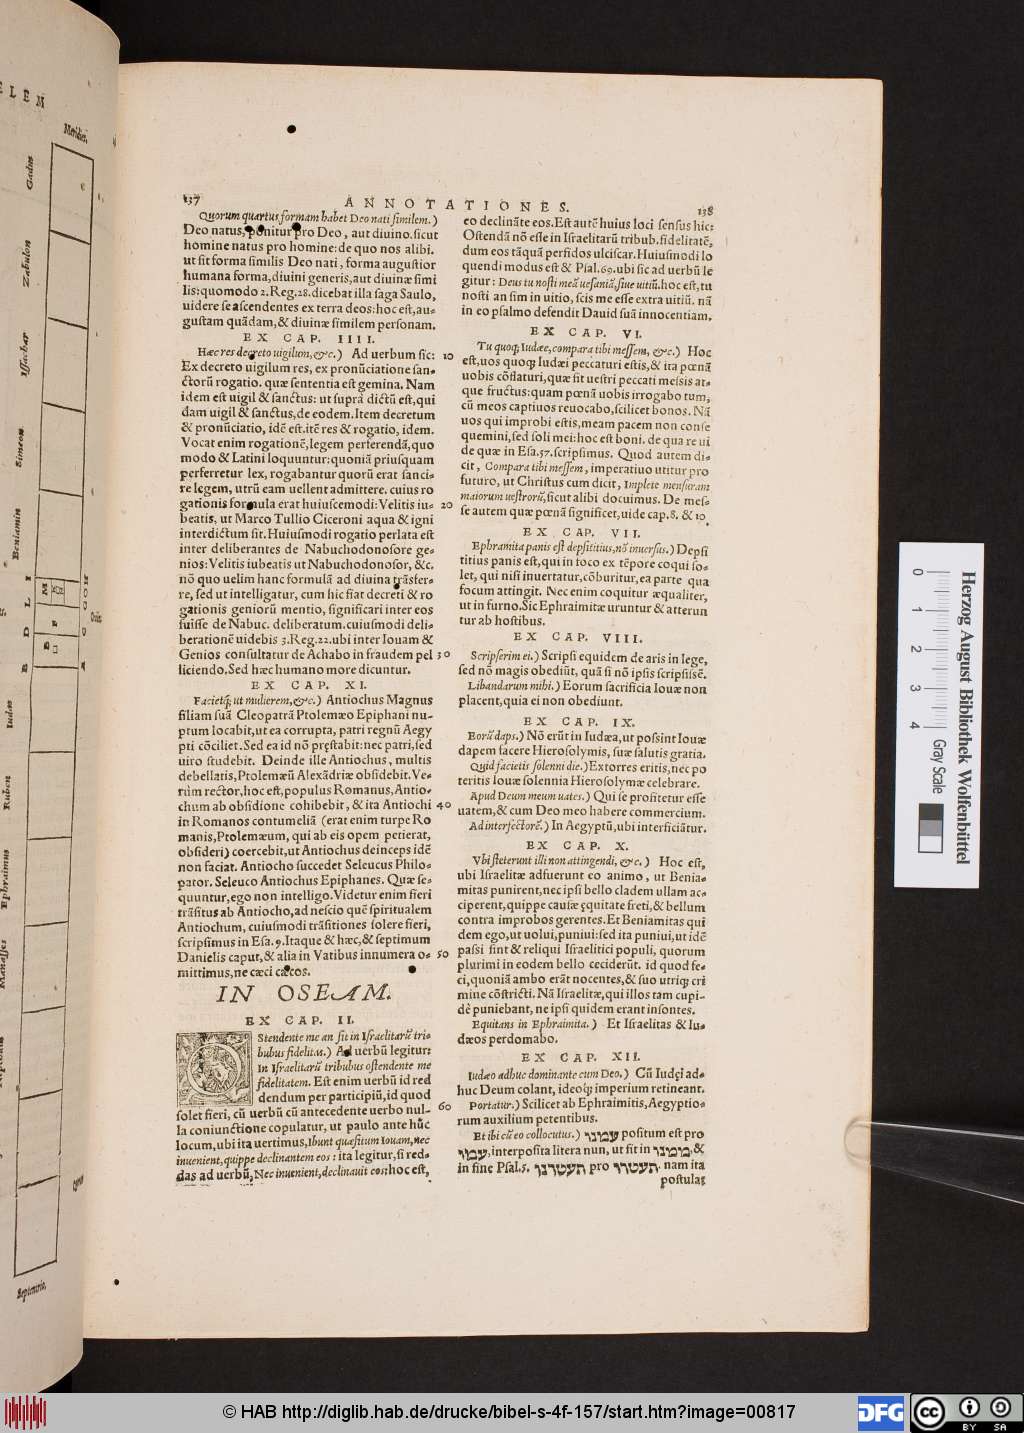 137
ANNOTATIONES.
138
Quorum quartus formam habet Deo nati similem.)
Deo natus, ponitur pro Deo, aut diuino. sicut
homine natus pro homine: de quo nos alibi.
ut sit forma similis Deo nati, forma augustior
humana forma, diuini generis, aut diuinæ simi
lis: quomodo 2. Reg. 28. dicebat illa saga Saulo,
uidere se ascendentes ex terra deos: hoc est, au-
gustam quādam, & diuinæ similem personam.
EX CAP. IIII.
Hæc res decreto uigilum, &c.) Ad uerbum sic: 10
Ex decreto uigilum res, ex pronūciatione san-
ctorū rogatio. quæ sententia est gemina. Nam
idem est uigil & sanctus: ut suprà dictū est, qui
dam uigil & sanctus, de eodem. Item decretum
& pronūciatio, idē est. itē res & rogatio, idem.
Vocat enim rogationē, legem perferendā, quo
modo & Latini loquuntur: quoniā priusquam
perferretur lex, rogabantur quorū erat sanci-
re legem, utrū eam uellent admittere. cuius ro
gationis formula erat huiuscemodi: Velitis iu- 20
beatis, ut Marco Tullio Ciceroni aqua & igni
interdictum sit. Huiusmodi rogatio perlata est
inter deliberantes de Nabuchodonosore ge-
nios: Velitis iubeatis ut Nabuchodonosor, &c.
nō quo uelim hanc formulā ad diuina trāsfer-
re, sed ut intelligatur, cum hîc fiat decreti & ro
gationis geniorū mentio, significari inter eos
fuisse de Nabuc. deliberatum. cuiusmodi deli-
berationē uidebis 3. Reg. 22. ubi inter Iouam &
Genios consultatur de Achabo in fraudem pel 30
liciendo. Sed hæc humano more dicuntur.
EX CAP. XI.
Facietq́; ut mulierem, &c.) Antiochus Magnus
filiam suā Cleopatrā Ptolemæo Epiphani nu-
ptum locabit, ut ea corrupta, patri regnū Aegy
pti cōciliet. Sed ea id nō pręstabit: nec patri, sed
uiro studebit. Deinde ille Antiochus, multis
debellatis, Ptolemæū Alexādriæ obsidebit. Ve-
rùm rector, hoc est, populus Romanus, Antio-
chum ab obsidione cohibebit, & ita Antiochi 40
in Romanos contumeliā (erat enim turpe Ro
manis, Ptolemæum, qui ab eis opem petierat,
obsideri) coercebit, ut Antiochus deinceps idē
non faciat. Antiocho succedet Seleucus Philo-
pator. Seleuco Antiochus Epiphanes. Quæ se-
quuntur, ego non intelligo. Videtur enim fieri
trāsitus ab Antiocho, ad nescio quē spiritualem
Antiochum, cuiusmodi trāsitiones solere fieri,
scripsimus in Esa. 9. Itaque & hæc, & septimum
Danielis caput, & alia in Vatibus innumera o- 50
mittimus, ne cæci cæcos.
IN OSEAM.
EX CAP. II.
OStendente me an sit in Israelitarū tri-
bubus fidelitas.) Ad uerbū legitur:
In Israelitarū tribubus ostendente me
fidelitatem. Est enim uerbū id red
dendum per participiū, id quod
solet fieri, cū uerbū cū antecedente uerbo nul- 60
la coniunctione copulatur, ut paulo ante hūc
locum, ubi ita uertimus, Ibunt quæsitum Iouam, nec
inuenient, quippe declinantem eos: ita legitur, si red-
das ad uerbū, Nec inuenient, declinauit eos: hoc est,
eo declināte eos. Est autē huius loci sensus hic:
Ostendā nō esse in Israelitarū tribub. fidelitatē,
dum eos tāquā perfidos ulciscar. Huiusmodi lo
quendi modus est & Psal. 69. ubi sic ad uerbū le
gitur: Deus tu nosti meā uesaniā, siue uitiū. hoc est, tu
nosti an sim in uitio, scis me esse extra uitiū. nā
in eo psalmo defendit Dauid suā innocentiam.
EX CAP. VI.
Tu quoq; Iudæe, compara tibi messem, &c.) Hoc
est, uos quoq; Iudæi peccaturi estis, & ita pœnā
uobis cōflaturi, quæ sit uestri peccati messis at-
que fructus: quam pœnā uobis irrogabo tum,
cū meos captiuos reuocabo, scilicet bonos. Nā
uos qui improbi estis, meam pacem non conse
quemini, sed soli mei: hoc est boni. de qua re ui
de quæ in Esa. 57. scripsimus. Quod autem di-
cit, Compara tibi messem, imperatiuo utitur pro
futuro, ut Christus cum dicit, Implete mensuram
maiorum uestrorū, sicut alibi docuimus. De mes-
se autem quæ pœnā significet, uide cap. 8. & 10.
EX CAP. VII.
Ephramita panis est depsititius, nō inuersus.) Depsi
titius panis est, qui in foco ex tēpore coqui so-
let, qui nisi inuertatur, cōburitur, ea parte qua
focum attingit. Nec enim coquitur æqualiter,
ut in furno. Sic Ephraimitæ uruntur & atterun
tur ab hostibus.
EX CAP. VIII.
Scripserim ei.) Scripsi equidem de aris in lege,
sed nō magis obediūt, quā si nō ipsis scripsissē.
Libandarum mihi.) Eorum sacrificia Iouæ non
placent, quia ei non obediunt.
EX CAP. IX.
Eorū daps.) Nō erūt in Iudæa, ut possint Iouæ
dapem facere Hierosolymis, suæ salutis gratia.
Quid facietis solenni die.) Extorres eritis, nec po
teritis Iouæ solennia Hierosolymæ celebrare.
Apud Deum meum uates.) Qui se profitetur esse
uatem, & cum Deo meo habere commercium.
Ad interfectorē.) In Aegyptū, ubi interficiātur.
EX CAP. X.
Vbi steterunt illi non attingendi, &c.) Hoc est,
ubi Israelitæ adfuerunt eo animo, ut Benia-
mitas punirent, nec ipsi bello cladem ullam ac-
ciperent, quippe causæ ęquitate freti, & bellum
contra improbos gerentes. Et Beniamitas qui
dem ego, ut uolui, puniui: sed ita puniui, ut idē
passi sint & reliqui Israelitici populi, quorum
plurimi in eodem bello ceciderūt. id quod fe-
ci, quoniā ambo erāt nocentes, & suo utriq; cri
mine cōstricti. Nā Israelitæ, qui illos tam cupi-
dè puniebant, ne ipsi quidem erant insontes.
Equitans in Ephraimita.) Et Israelitas & Iu-
dæos perdomabo.
EX CAP. XII.
Iudæo adhuc dominante cum Deo.) Cū Iudęi ad-
huc Deum colant, ideoq́; imperium retineant.
Portatur.) Scilicet ab Ephraimitis, Aegyptio-
rum auxilium petentibus.
Et ibi cū eo collocutus.) עמנו positum est pro
עמו, interposita litera nun, ut fit in &
in fine Psal. 5. pro nam ita
postulat
Meridies.
Gadus
Zabulon
Issachar
Simeon
Beniamin
Iudas
Ruben
Ephraimus
Manasses
Septentrio.
Herzog August Bibliothek Wolfenbüttel
0 1 2 3 4
Gray Scale
© HAB http://diglib.hab.de/drucke/bibel-s-4f-157/start.htm?image=00817
DFG
cc BY SA